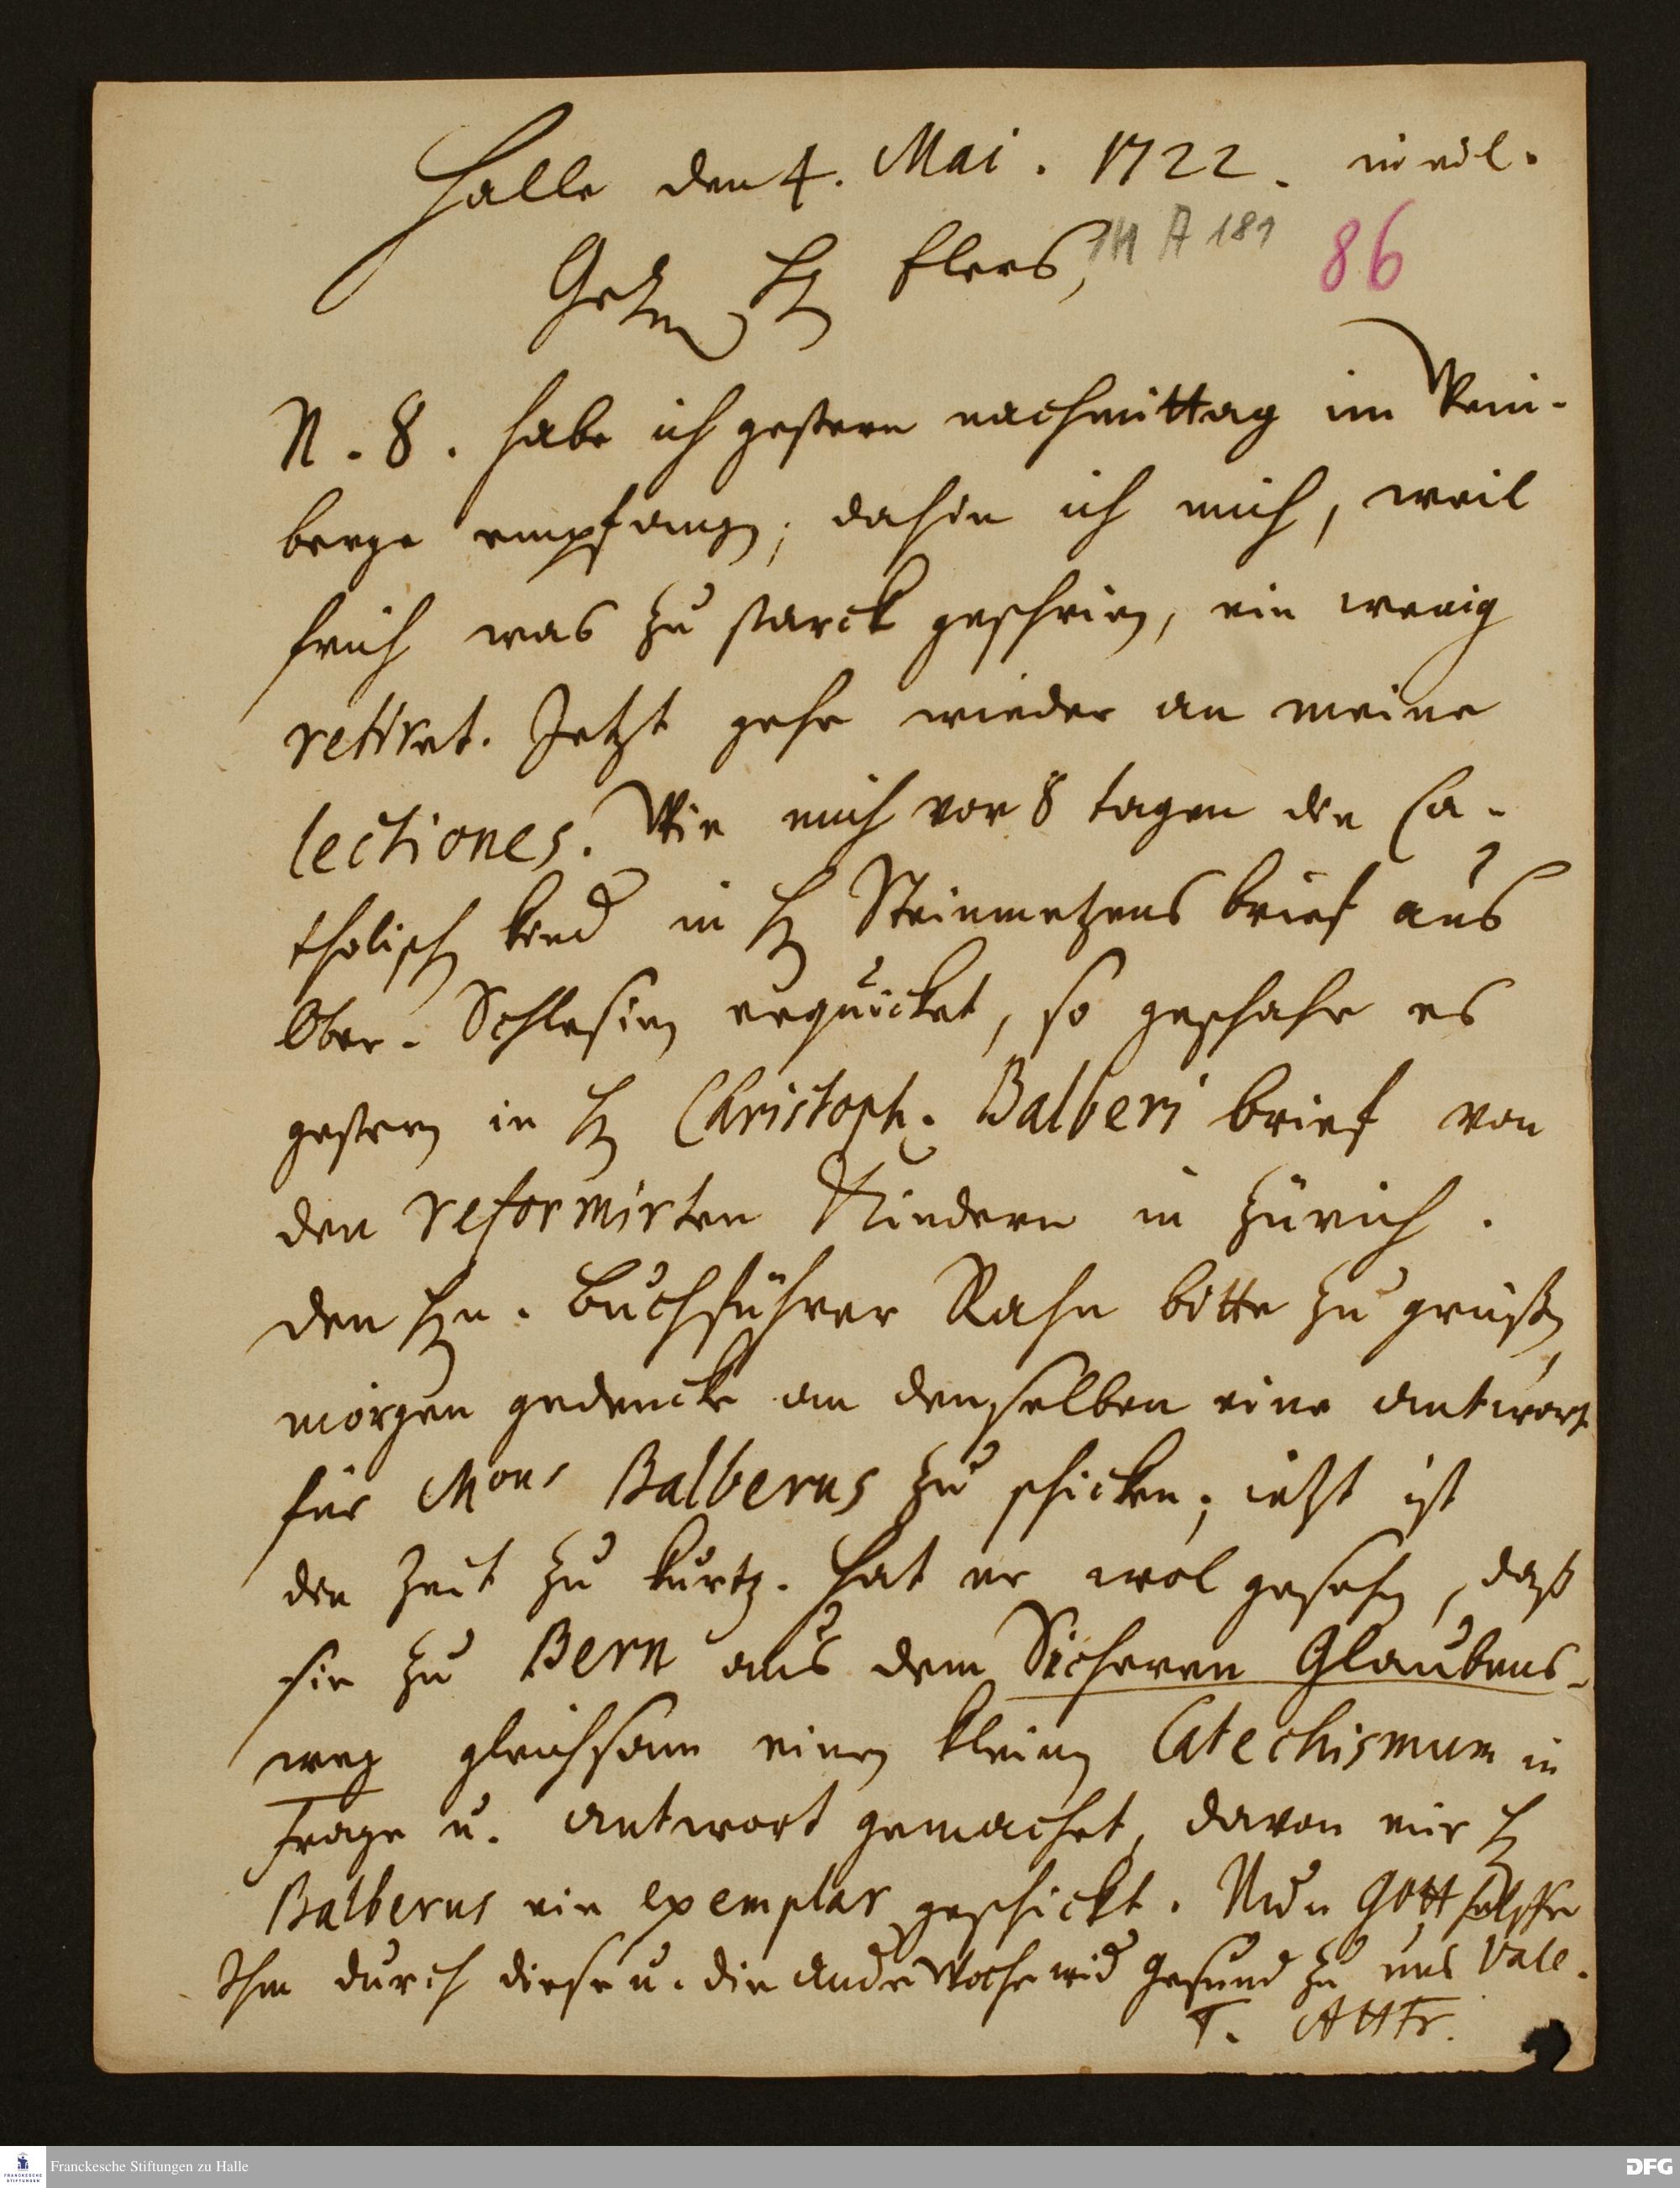 Halle den 4. Mai. 1722. in eil.
H. Elers,
1H A 181
86
N. 8. habe ich gestern nachmittag im Wein-
berge empfangen, dahin ich mich, weil
früh was zu starck geschrien, ein wenig
retiret. Jetzt gehe wieder an meine
lectiones. Wie mich vor 8 tagen die Ca-
tholischen Kind in H. Steinmetzens brief aus
Ober-Schlesien erquicket, so geschahe es
gestern in H. Christoph. Balberi brief von
den reformirten Kindern in Zürich.
den Hn. Buchführer Rahn bitte zu grüßen,
morgen gedencke an denselben eine antwort
für Mons Balberus zu schicken; ietzt ist
die Zeit zu kurtz. Hat er wol gesehen, daß
sie zu Bern aus dem Sicheren Glaubens-
weg gleichsam einen kleinen Catechismum in
Frage u. antwort gemachet, davon mir H.
Balberus ein exemplar geschickt. Nun Gott helffe
Ihm durch diese u. die andre Woche wied gesund zu uns Vale.
T. AHFr.
Franckesche Stiftungen zu Halle
FRANCKESCHE
STIFTUNGEN
DFG